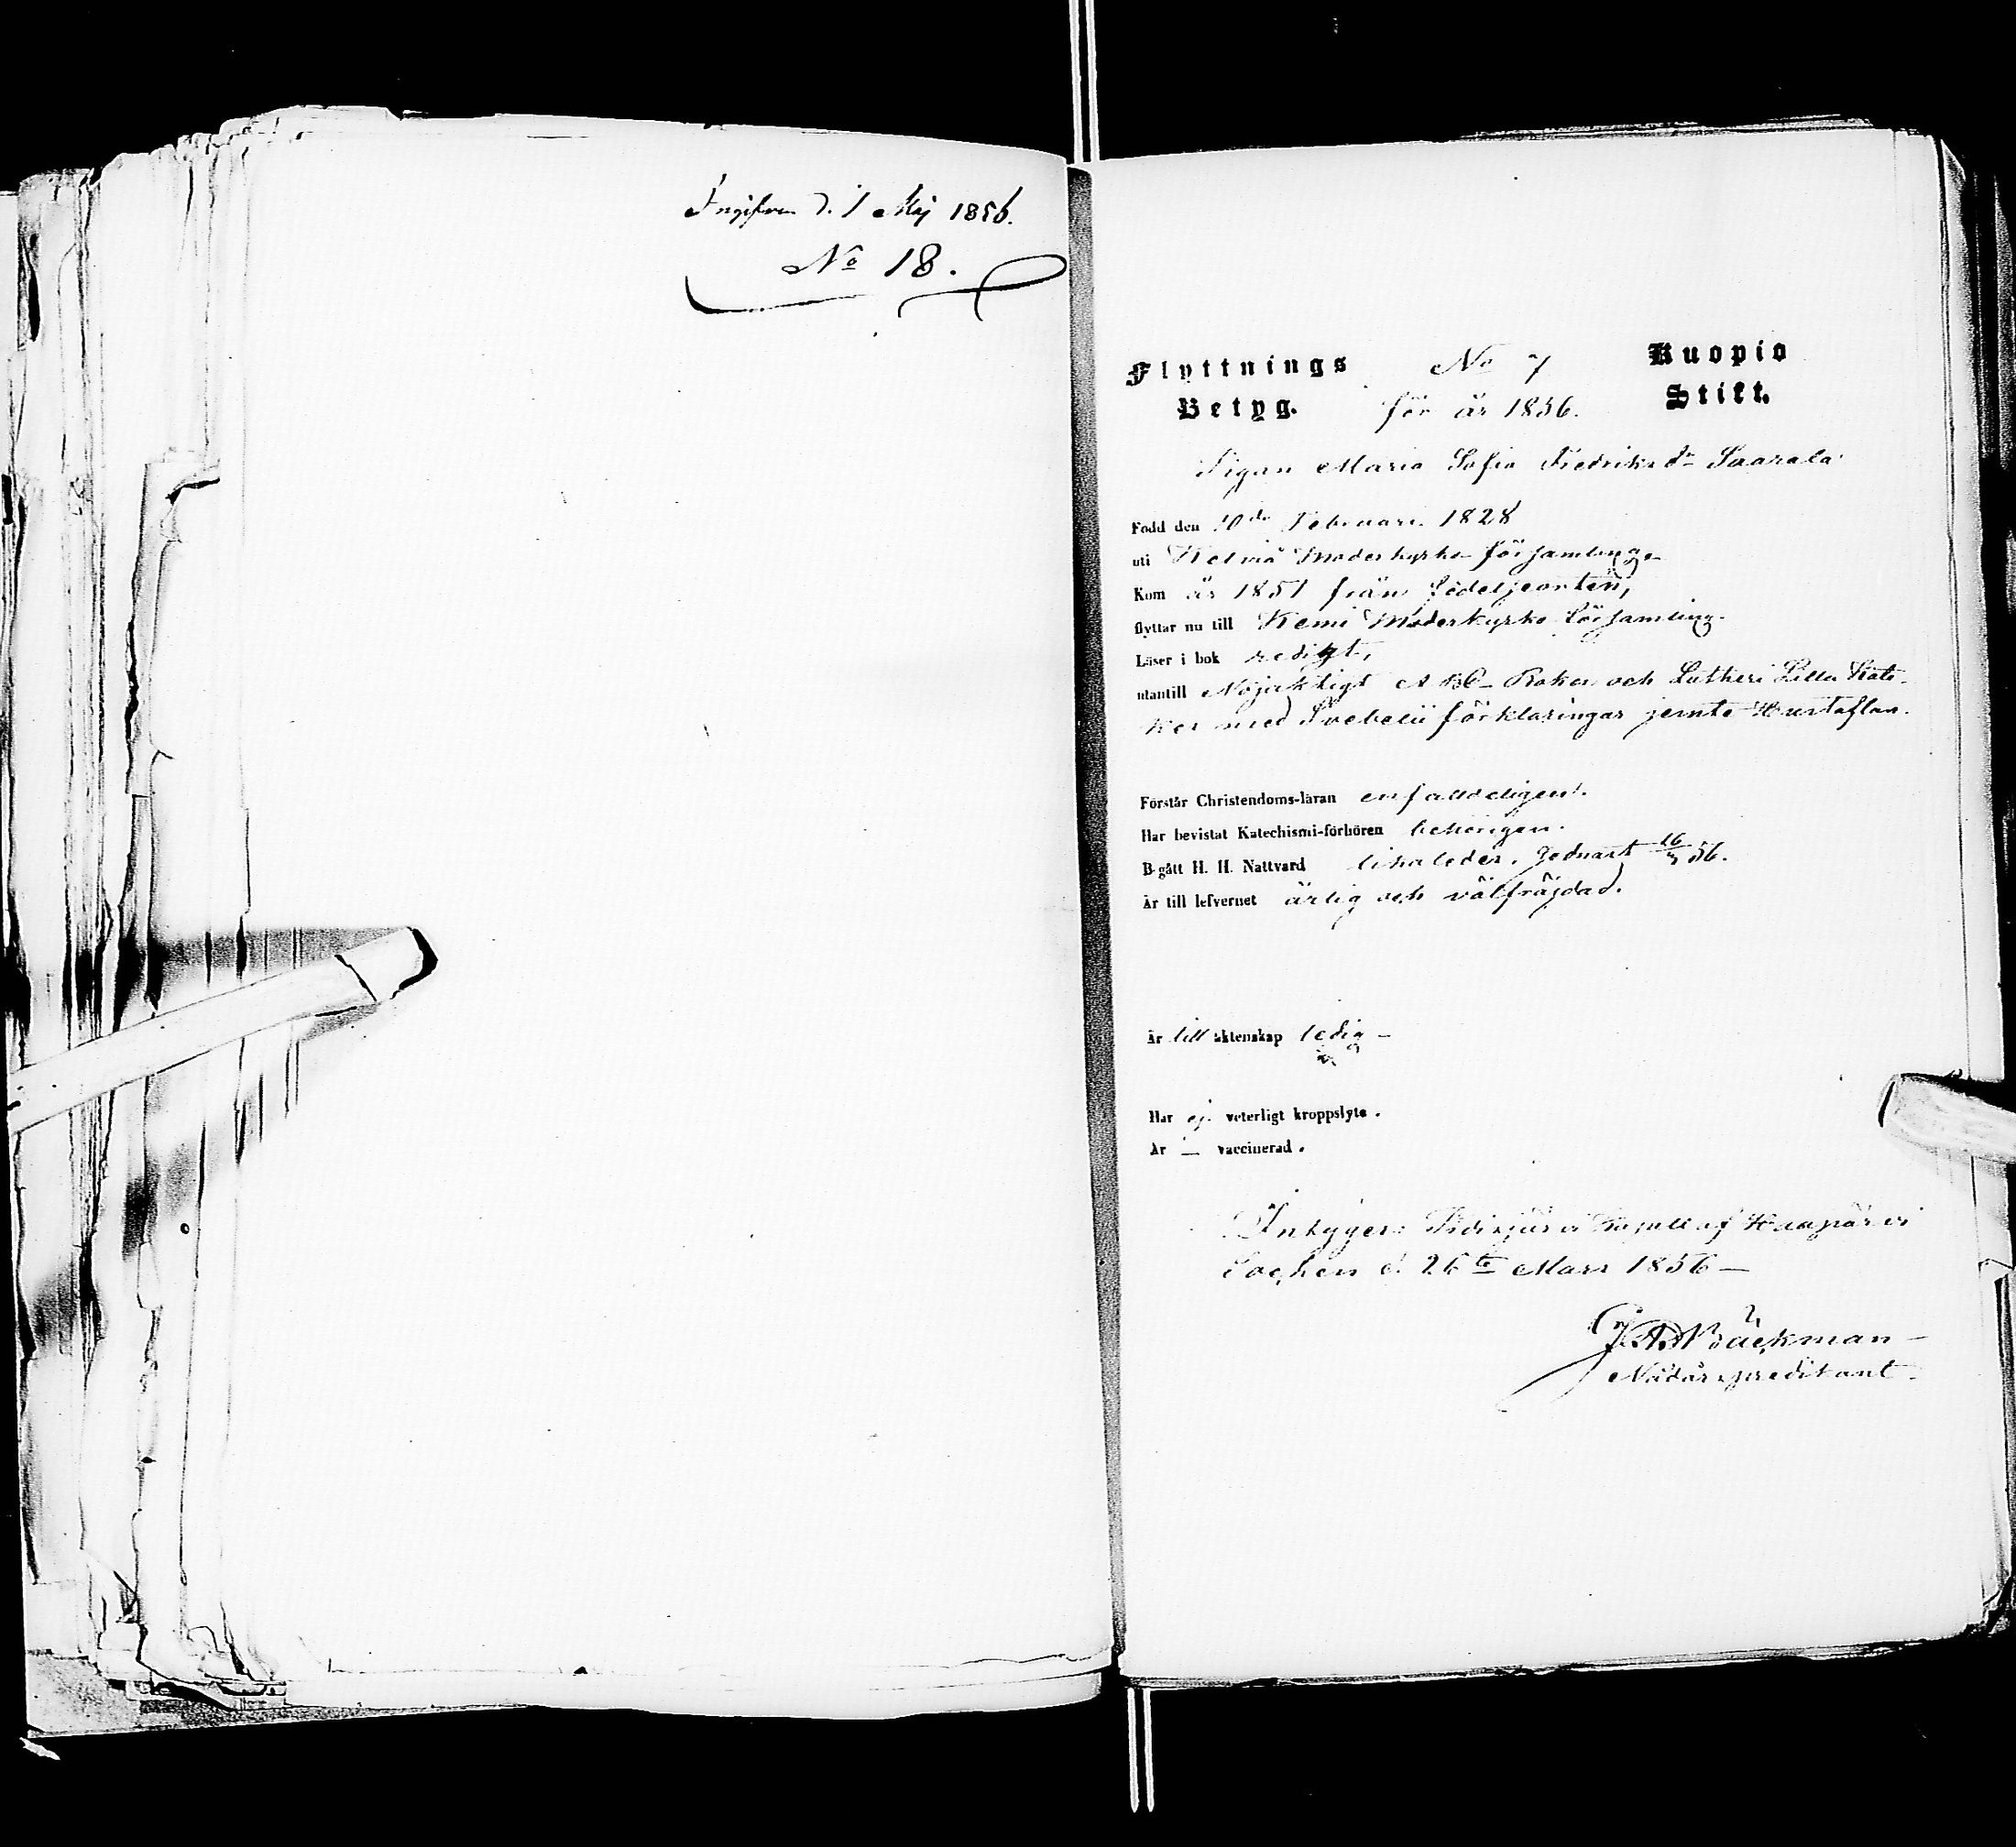 Ingifven d. 1 Maj 1856.
No 18.
Flyttnings No 7 Kuopio
Betyg. för år 1856. Stift.
Pigan Maria Sofia Fredriksdr Saarala
Född den 10de Februari 1828
uti Moderkyrko församlinge
Kom år 1851 från födelseorten,
flyttar nu till Kemi Moderkyrko församling.
Läser i bok redigt,
utantill Nöjaktigt ABC-Boken och Lutheri Lilla Kate-
kes med Svebelii förklaringar jemte Hustaflan.
Förstår Christendoms-läran enfalldeligen.
Har bevistat Katechismi-förhören behörigen.
Begått H. H. Nattvard likaledes, sednast 16/3 56.
Är till lefvernet ärlig och välfräjdad.
Är till äktenskap ledig —
Har ej veterligt kroppslyte.
Är — vaccinerad.
Intyger: Pidisjärvi Kapell af Haapajärvi
Sochen d. 26te Mars 1856 —
Bäckman —
Nådårspredikant.